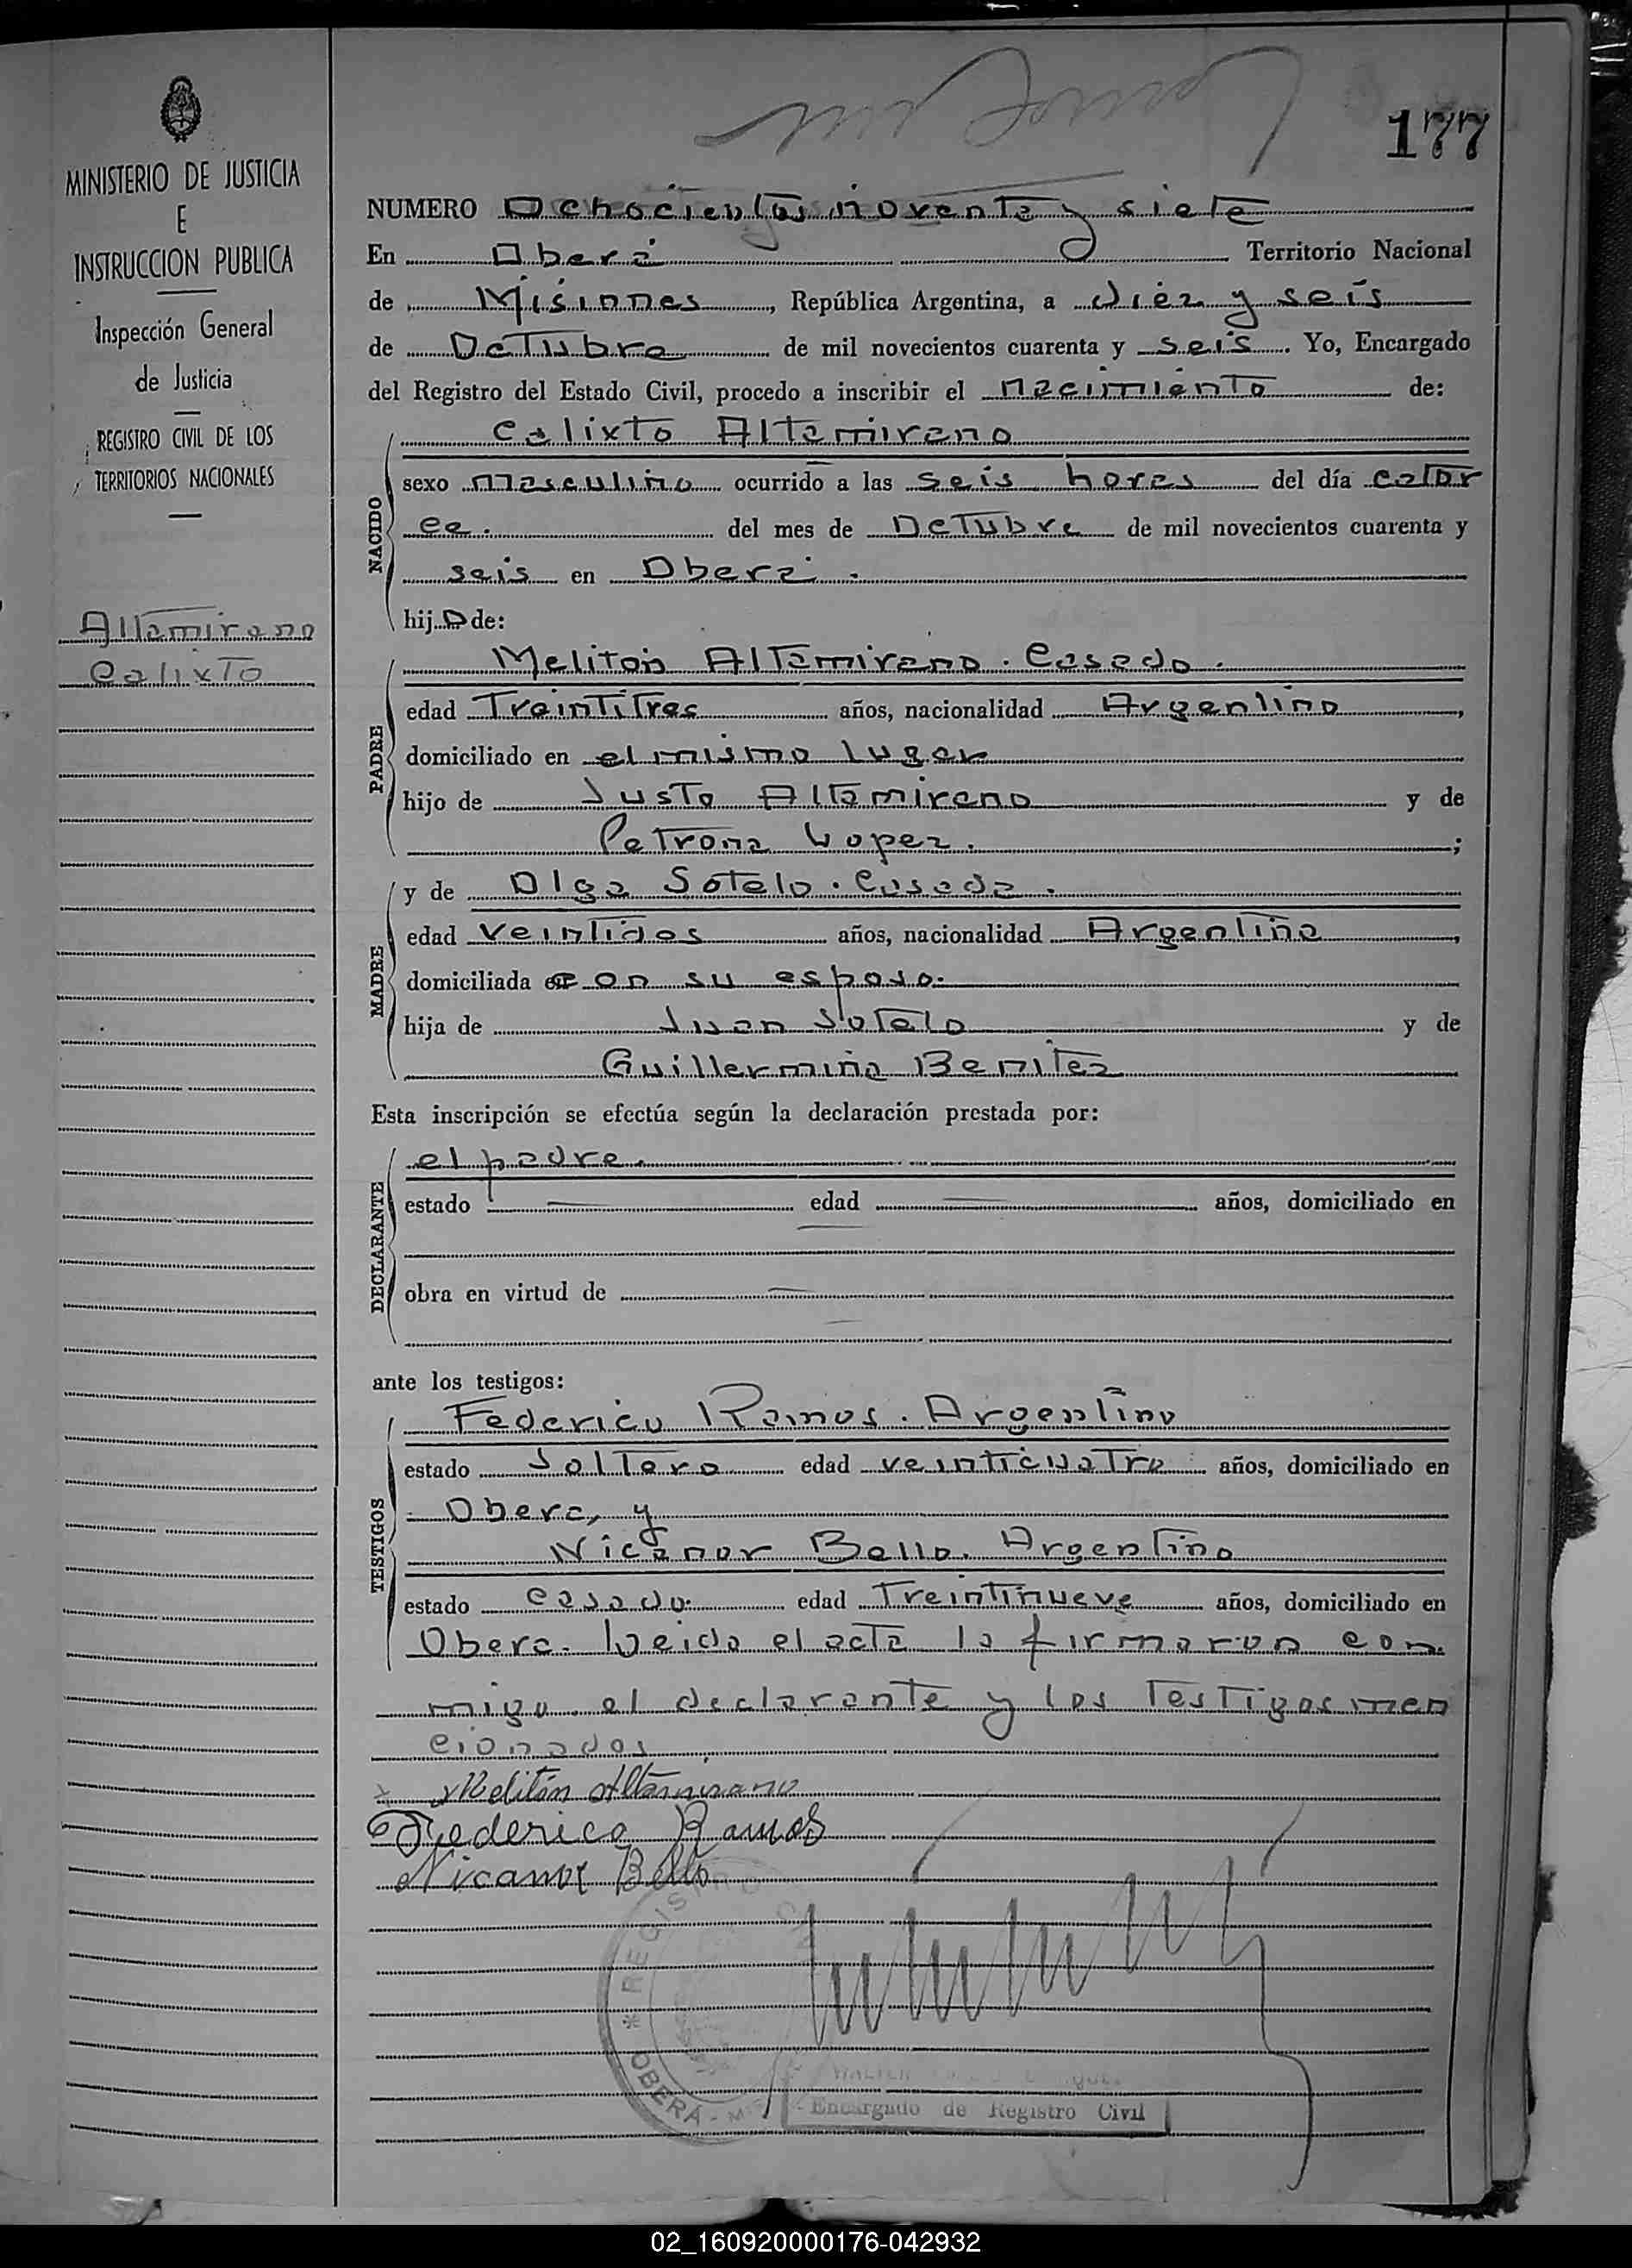 MINISTERIO DE JUSTICIA
E
INSTRUCCION PUBLICA
Inspección General
de Justicia
REGISTRO CIVIL DE LOS
TERRITORIOS NACIONALES
Altamirano
Calixto
177
NUMERO Ochocientos noventa y siete
En Oberá Territorio Nacional
de Misiones, República Argentina, a diez y seis
de Octubre de mil novecientos cuarenta y seis. Yo, Encargado
del Registro del Estado Civil, procedo a inscribir el nacimiento de:
Calixto Altamirano
NACIDO
sexo masculino ocurrido a las seis horas del día cator
ce. del mes de Octubre de mil novecientos cuarenta y
seis en Oberá.
hijo de:
PADRE
Meliton Altamirano. Casado.
edad Treintitres años, nacionalidad Argentino,
domiciliado en el mismo lugar
hijo de Justo Altamirano y de
Petrona Lopez. ;
MADRE
y de Olga Sotelo. Casada.
edad veintidos años, nacionalidad Argentina,
domiciliada con su esposo.
hija de Juan Sotelo y de
Guillermina Benitez
Esta inscripción se efectúa según la declaración prestada por:
DECLARANTE
el padre.
estado edad años, domiciliado en
obra en virtud de
ante los testigos:
TESTIGOS
Federico Ramos. Argentino
estado Soltero edad veinticuatro años, domiciliado en
Obera, y
Nicanor Bello. Argentino
estado casado. edad Treintinueve años, domiciliado en
Obera. Leida el acta la firmaron con
migo el declarante y los Testigos men
cionados
x Melitón Altamirano
Federico Ramos
Nicanor Bello
* REGISTRO
OBERA -
WALTER
Encargado de Registro Civil
02_160920000176-042932